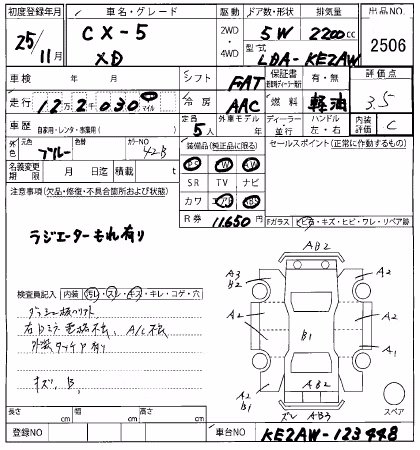 初度登録年月 車名・グレード 駆動 ドア数・形状 排気量 出品NO.
25/11月 CX-5 XD 2WD・4WD 5W 2200cc 2506
型式 LDA-KE2AW
車検 年 月 シフト FAT 保証書 有・無 評価点
走行 12万2千030 マイル 冷房 AAC 燃料 軽油 3.5
車歴 自家用・レンタ・事業用( ) 定員 5人 外車モデル年 ディーラー・並行 ハンドル 左・右 内装評価 C
外色 元色 ブルー 色替 カラーNO 42B 装備品(純正品に限る) セールスポイント(正常に動作するもの)
名義変更期限 月 日迄 積載量 t PS PW AW
SR TV ナビ
注意事項(欠品・修復・不具合箇所および状態) カワ エアB ABS
R券 11,650円 Fガラス トビ石・キズ・ヒビ・ワレ・リペア跡
ラジエーターもれ有り
AB2
A3 B2 A2
検査員記入 内装 汚レ・スレ・キズ・キレ・コゲ・穴
A2 A2
B1
A/C不
A2 A1
外装タッチア有り
キズ、B、
AB2
A2 B1 A2
ズレ AB3 スペア
長さ cm 幅 cm 高さ cm
登録NO 車台NO KE2AW-123448